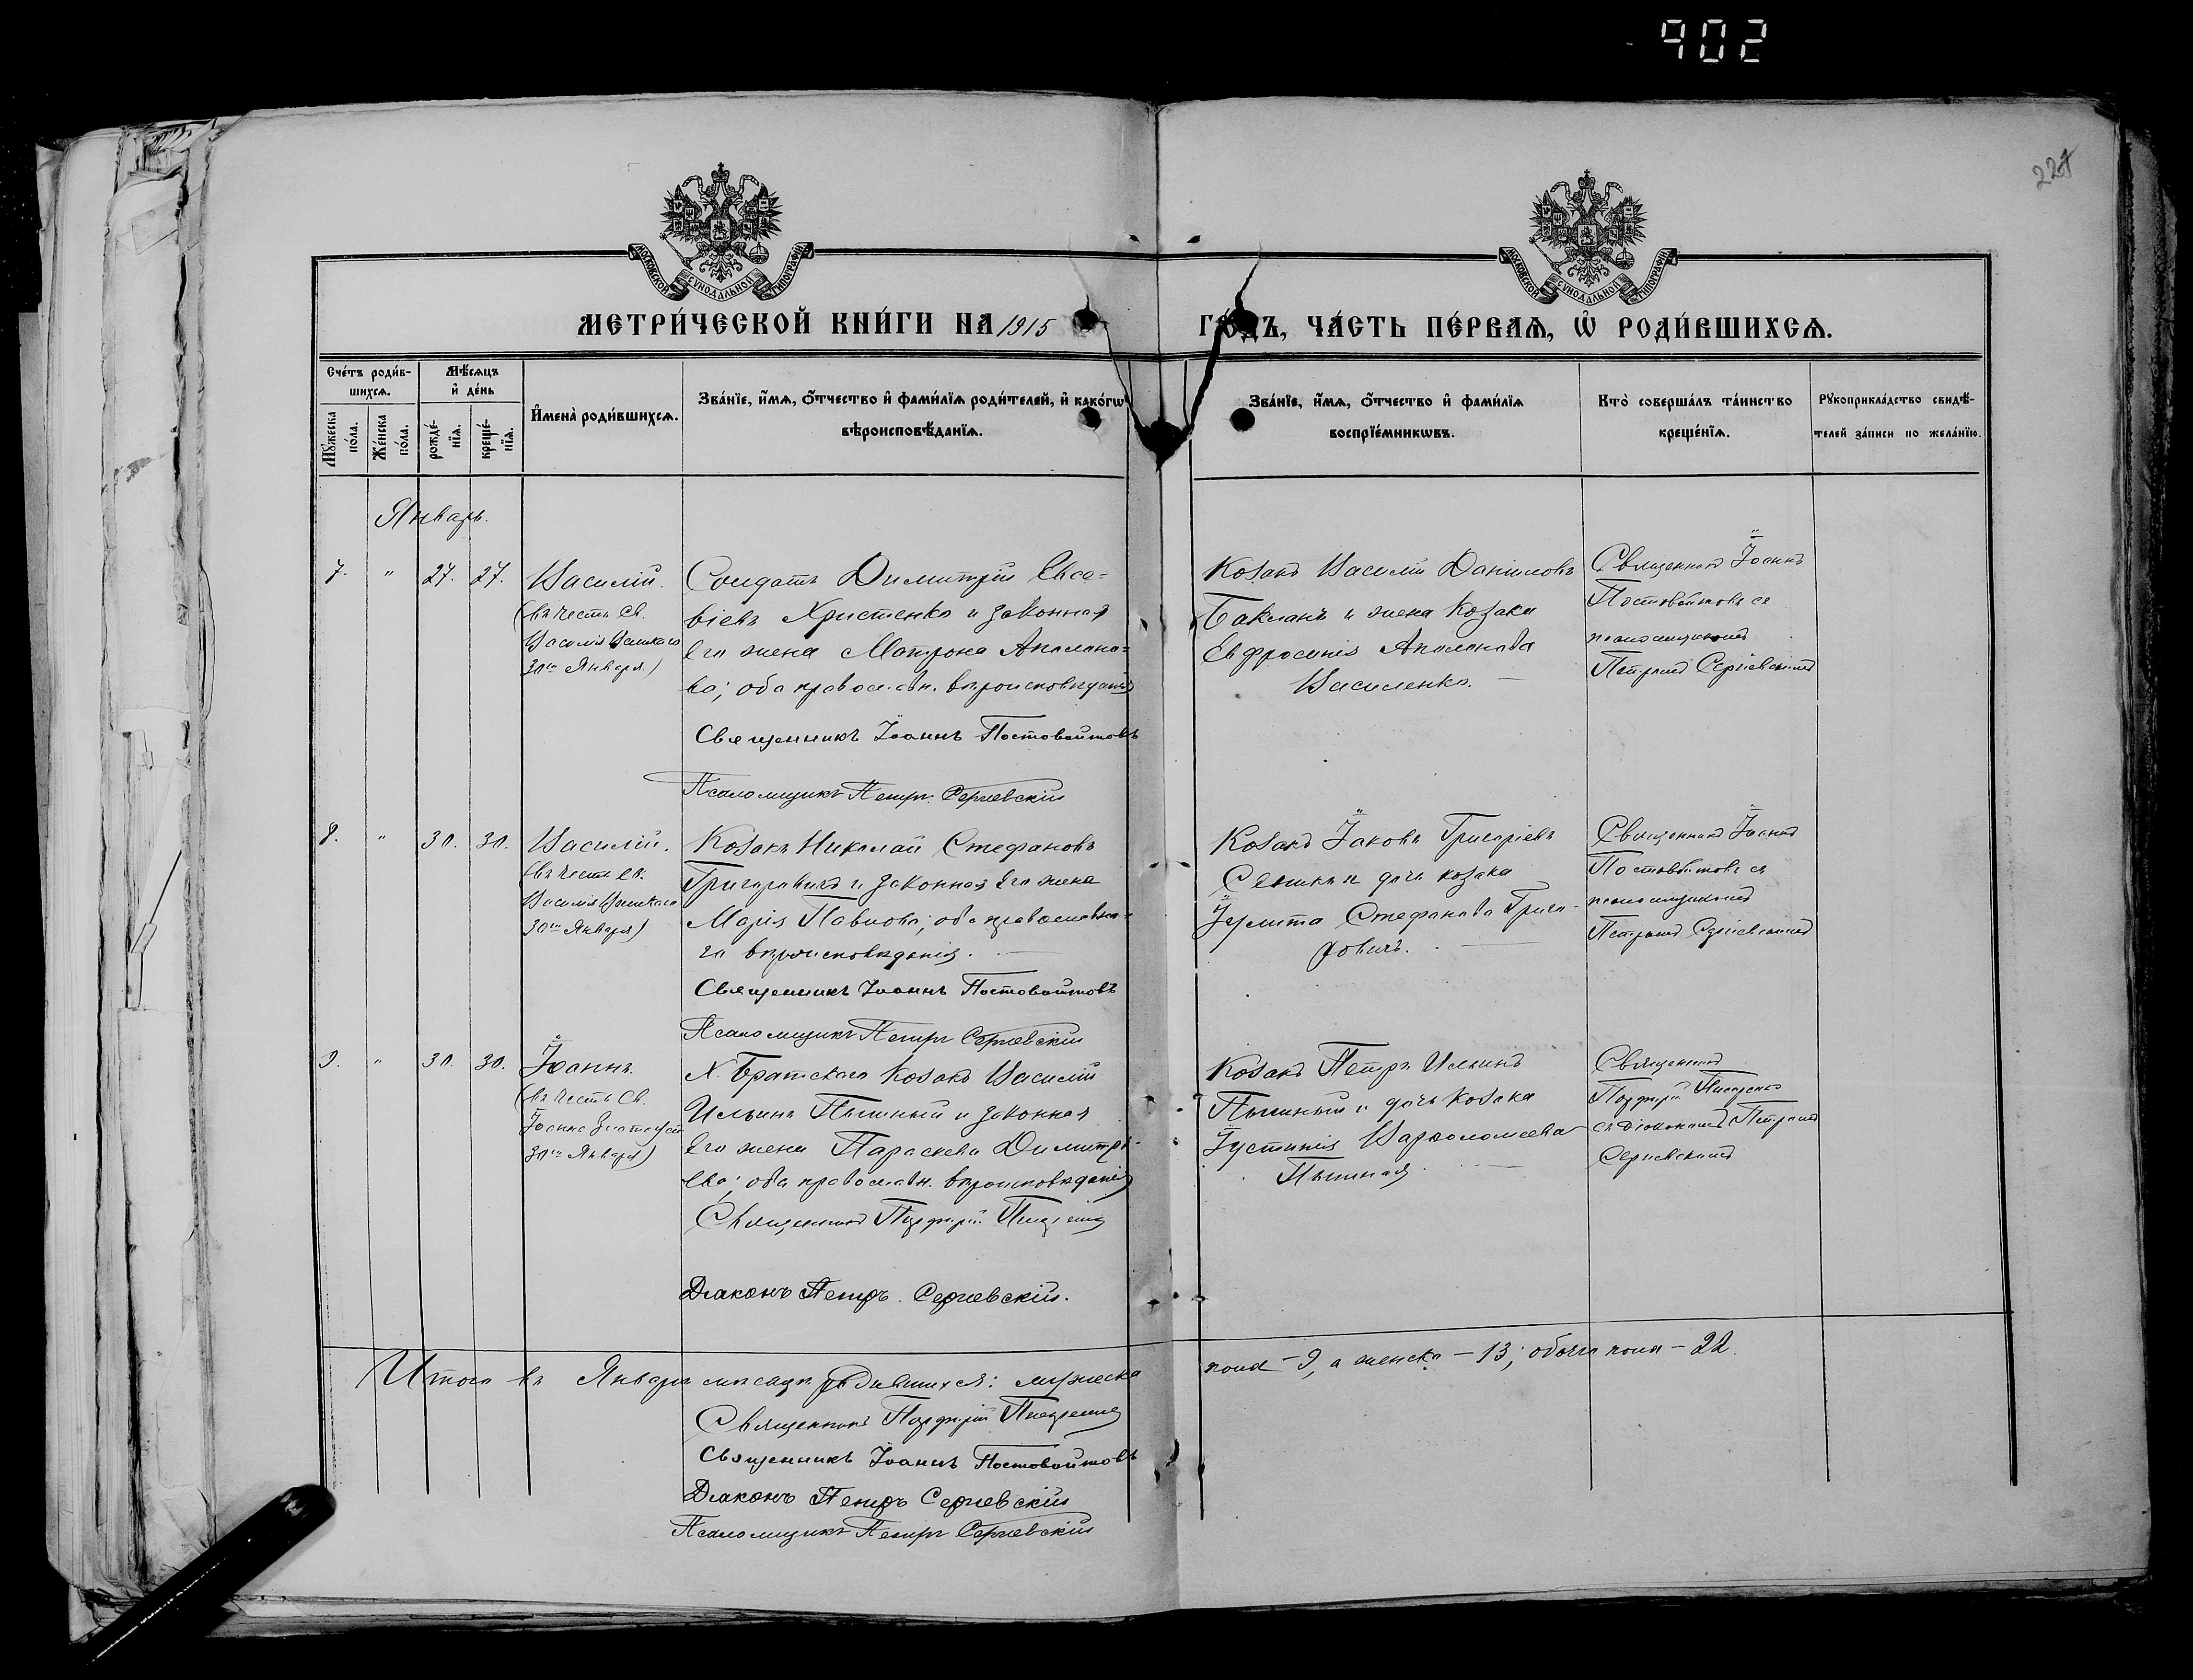 902
221
МОСКОВСКОЙ СУНОДАЛЬНОЙ ТИПОГРАФІИ
МОСКОВСКОЙ СУНОДАЛЬНОЙ ТИПОГРАФІИ
МЕТРИ́ЧЕСКОЙ КНИ́ГИ НА 1915
ГО́ДЪ, ЧА́СТЬ ПЕ́РВАЯ, Ѡ҆ РОДИ́ВШИХСЯ.
Сче́тъ роди́в-
шихся.
Мѣ́сяцъ
и҆ де́нь
Мꙋ́жеска по́ла.
Же́нска по́ла.
рожде́-нїя.
креще́-нїя.
И҆мена̀ роди́вшихся.
Зва́нїе, и҆́мя, ѻ҆́тчество и҆ фами́лїя роди́телей, и҆ како́гѡ
вѣроисповѣ́данїя.
Зва́нїе, и҆́мя, ѻ҆́тчество и҆ фами́лїя
воспрїе́мникѡвъ.
Кто̀ соверша́лъ та́инство
креще́нїя.
Рꙋкоприкла́дство свидѣ́-
телей за́писи по жела́нїю.
Январь.
7. " 27. 27. Василій.
(въ честь Св.
Василія Великаго
30го Января)
Солдатъ Димитрій Евсе-
віевъ Христенко и законная
его жена Матрона Аполлоно-
ва; оба православн. вѣроисповѣданія
Священникъ Іоаннъ Постовойтовъ
Псаломщикъ Петръ Сергіевскій
Козакъ Василій Даніиловъ
Бакланъ и жена козака
Евфросинія Аполлонова
Василенко.
Священникъ Іоаннъ
Постовойтовъ съ
псаломщикомъ
Петромъ Сергіевскимъ
8. " 30. 30. Василій.
(въ честь Св.
Василія Великаго
30го Января)
Козакъ Николай Стефановъ
Григоровичъ и законная его жена
Марія Павлова; оба православна-
го вѣроисповѣданія.
Священникъ Іоаннъ Постовойтовъ
Псаломщикъ Петръ Сергіевскій
Козакъ Іаковъ Григоріевъ
и дочь козака
Іулита Стефанова Григо-
ровичъ.
Священникъ Іоаннъ
Постовойтовъ съ
псаломщикомъ
Петромъ Сергіевскимъ
9. " 30. 30. Іоаннъ.
(въ честь Св.
Іоанна Златоуст.
30го Января)
Х. Братскаго Козакъ Василій
Ильинъ Пышный и законная
его жена Параскева Димитрі-
ева; оба православн. вѣроисповѣданія
Священникъ Порфирій
Діаконъ Петръ Сергіевскій.
Козакъ Петръ Ильинъ
Пышный и дочь козака
Іустинія Варѳоломеева
Пышная.
Священникъ
Порфирій
съ діакономъ Петромъ
Сергіевскимъ
Итого въ Январѣ мѣсяцѣ родившихся: мужеска
пола – 9, а женска – 13; обоего пола – 22.
Священникъ Порфирій
Священникъ Іоаннъ Постовойтовъ
Діаконъ Петръ Сергіевскій
Псаломщикъ Петръ Сергіевскій